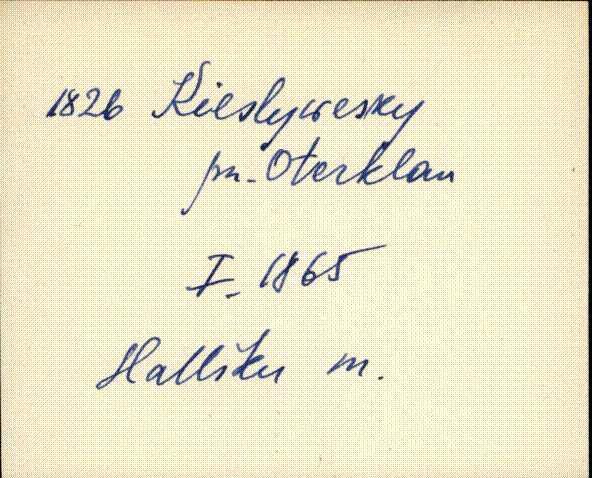 1826 Kieslywesky
pn. Oterklau
I. 1865
Halliku m.